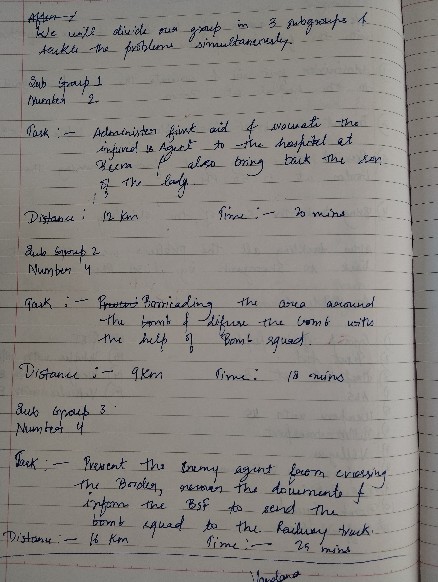 We will divide our group in 3 subgroups &
tackle the problems simultaneously.
Sub Group 1
Number 2.
Task :- Administer first aid & evacuate the
injured Agent to the hospital at
also bring back the son
of the lady
Distance : 12 Km Time :- 20 mins
Sub Group 2
Number 4
Task :- Barricading the area around
the bomb & difuse the bomb with
the help of Bomb squad.
Distance :- 9Km Time : 18 mins
Sub Group 3
Number 4
Task :- Prevent the Enemy agent from crossing
the Border, recover the documents &
inform the BSF to send the
bomb squad to the Railway track.
Distance :- 16 Km Time :- 25 mins